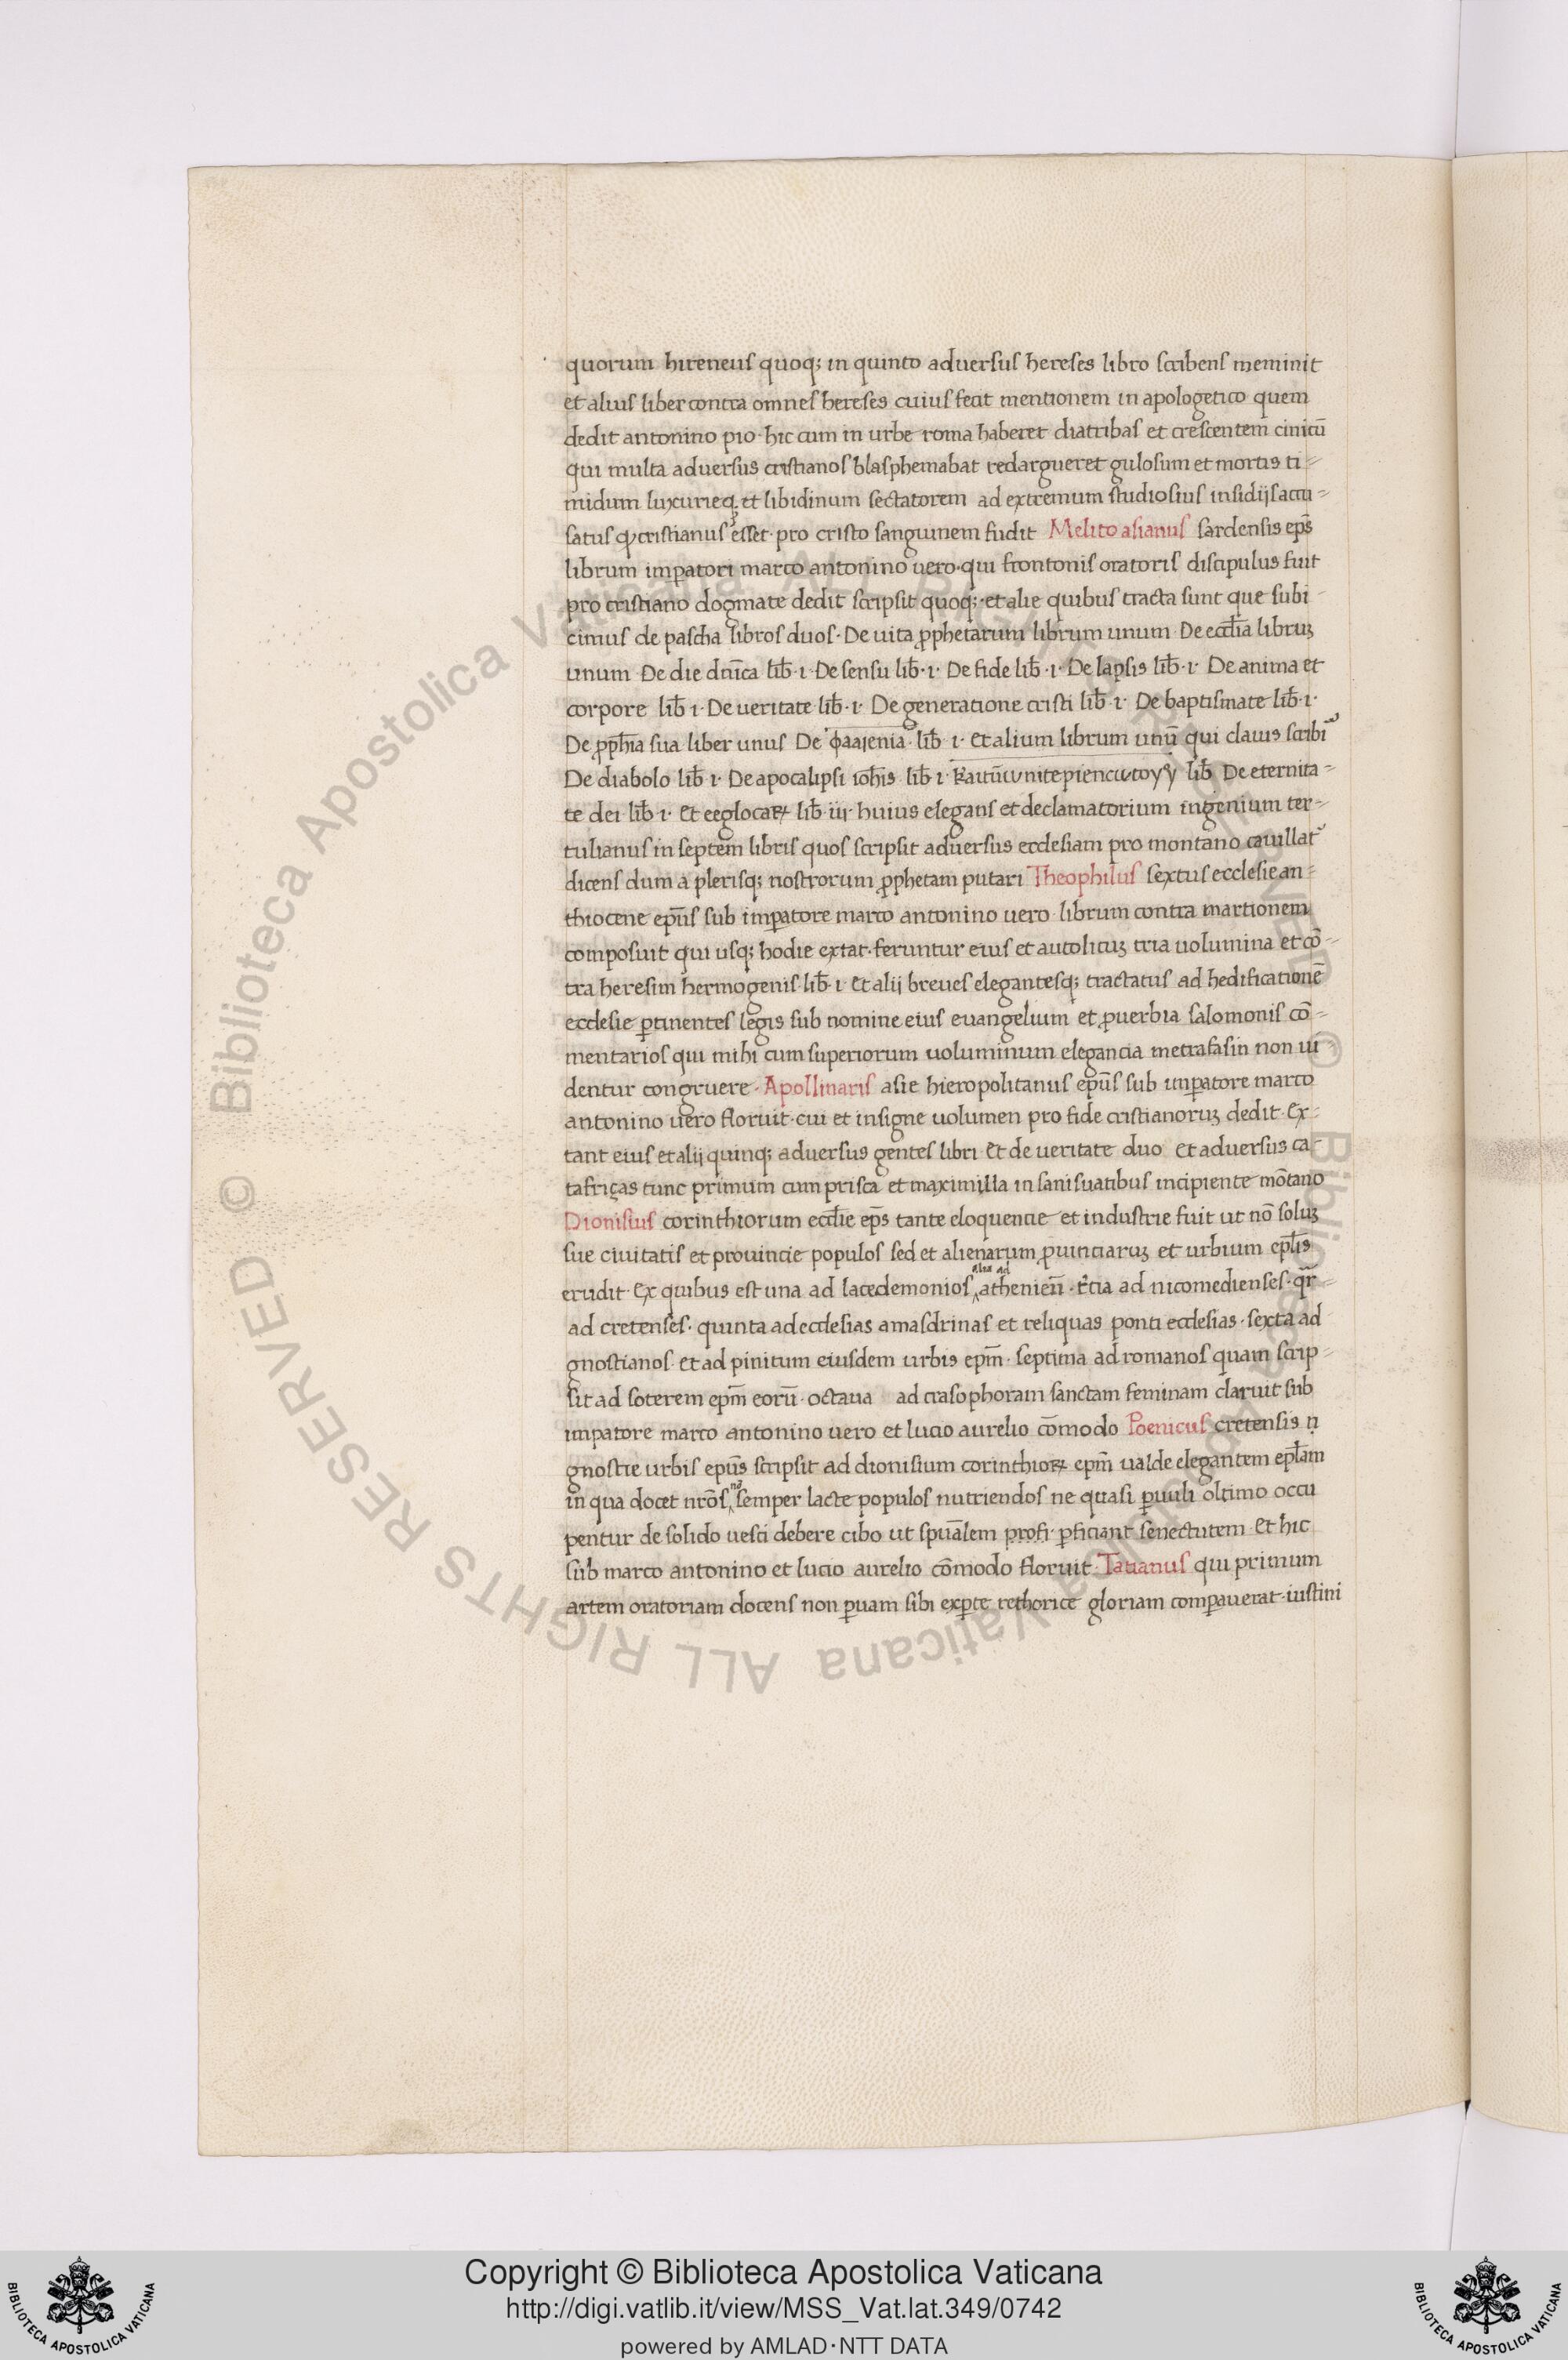 quorum hireneus quoq; in quinto adversus hereses libro scribens meminit
et alius liber contra omnes hereses cuius fecit mentionem in apologetico quem
dedit antonino pio · hic cum in urbe roma haberet diatribas et crescentem cinicū
qui multa adversus cristianos blasphemabat redargueret gulosum et mortis ti=
midum luxurieq; et libidinum sectatorem ad extremum studiosius insidijs accu=
satus ꝙ cristianus esset · pro cristo sanguinem fudit Melito asianus sardensis ep̄s
librum imꝑatori marco antonino vero · qui frontonis oratoris discipulus fuit
pro cristiano dogmate dedit scripsit quoq; · et alie quibus tracta sunt que subi
cimus de pascha libros duos · De vita ꝓphetarum librum unum · De eccl̄ia libruꝫ
unum De die dn̄ica lib̄ · 1 · De sensu lib̄ · 1 · De fide lib̄ · 1 · De lapsis lib̄ · 1 · De anima et
corpore lib̄ 1 · De veritate lib̄ · 1 · De generatione cristi lib̄ · 1 · De baptismate lib̄ · 1 ·
De ꝓph̄ia sua liber unus De φααιενια · lib̄ 1 · Et alium librum unū qui clavis scribi
De diabolo lib̄ 1 · De apocalipsi ioh̄is lib̄ 1 · lib̄ De eternita=
te dei lib̄ 1 · Et eeglocaꝝ lib̄ iij · huius elegans et declamatorium ingenium ter=
tulianus in septem libris quos scripsit adversus ecclesiam pro montano cavillat᷑
dicens dum a plerisq; nostrorum ꝓphetam putari Theophilus sextus ecclesie an=
thiocene ep̄us sub imꝑatore marco antonino vero librum contra martionem
composuit qui usq; hodie extat · feruntur eius et autolicuꝫ tria volumina et cō=
tra heresim hermogenis · lib̄ · 1 Et alij breves elegantesq; tractatus ad hedificationē
ecclesie ꝑtinentes legis sub nomine eius evangelium et ꝓverbia salomonis cō=
mentarios qui mihi cum superiorum voluminum elegancia metrafasin non vi=
dentur congruere · Apollinaris asie hieropolitanus ep̄us sub imꝑatore marco
antonino vero floruit · cui et insigne volumen pro fide cristianoruꝫ dedit · Ex=
tant eius et alij quinq; adversus gentes libri Et de veritate duo et adversus ca=
tafrigas tunc primum cum prisca et maximilla in sanis vatibus incipiente mōtano
Dionisius corinthiorum eccl̄ie ep̄s tante eloquencie et industrie fuit ut nō soluꝫ
sue civitatis et provincie populos sed et alienarum ꝓvinciaruꝫ et urbium epl̄is
erudit · Ex quibus est una ad lacedemonios alia ad athenien̄ · t̄cia ad nicomedienses · qr̄
ad cretenses · quinta ad ecclesias amasdrinas et reliquas ponti ecclesias · sexta ad
gnostianos · et ad pinitum eiusdem urbis ep̄m · septima ad romanos quam scrip=
sit ad soterem ep̄m eorū · octava ad crasophoram sanctam feminam claruit sub
imꝑatore marco antonino vero et lucio aurelio cōmodo Poenicus cretensis n
gnostie urbis ep̄us scripsit ad dionisium corinthioꝝ ep̄m valde elegantem epl̄am
in qua docet nr̄os nō semper lacte populos nutriendos ne quasi ꝑvuli oltimo occu
pentur de solido vesci debere cibo ut spūalem profi ꝑficiant senectutem Et hic
sub marco antonino et lucio aurelio cōmodo floruit · Tatianus qui primum
artem oratoriam docens non ꝑvam sibi exꝑte rethorice gloriam comꝑaverat · iustini
Copyright © Biblioteca Apostolica Vaticana
http://digi.vatlib.it/view/MSS_Vat.lat.349/0742
powered by AMLAD·NTT DATA
BIBLIOTECA APOSTOLICA VATICANA
BIBLIOTECA APOSTOLICA VATICANA
© Biblioteca Apostolica Vaticana ALL RIGHTS RESERVED © Biblioteca Apostolica Vaticana ALL RIGHTS RESERVED